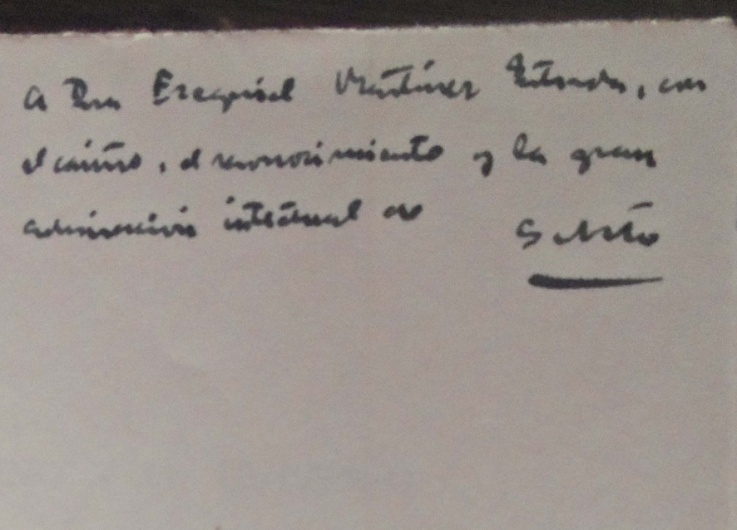 A Don Ezequiel Martínez Estrada, con
el cariño, el reconocimiento y la gran
admiración intelectual de Sabato